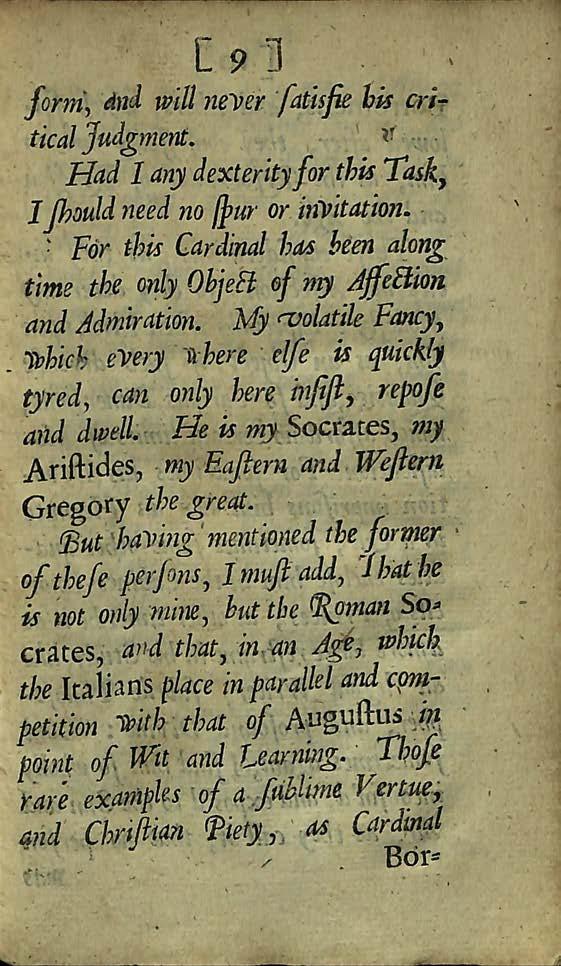 [ 9 ]
form, and will never ſatisfie his cri-
tical Judgment.
Had I any dexterity for this Task,
I ſhould need no ſpur or invitation.
For this Cardinal has been along
time the only Object of my Affection
and Admiration. My volatile Fancy,
which every where elſe is quickly
tyred, can only here inſiſt, repoſe
and dwell. He is my Socrates, my
Ariſtides, my Eaſtern and Weſtern
Gregory the great.
But having mentioned the former
of theſe perſons, I muſt add, That he
is not only mine, but the Roman So-
crates, and that, in an Age, which
the Italians place in parallel and com-
petition with that of Auguſtus in
point of Wit and Learning. Thoſe
rare examples of a ſublime Vertue,
and Chriſtian Piety, as Cardinal
Bor-